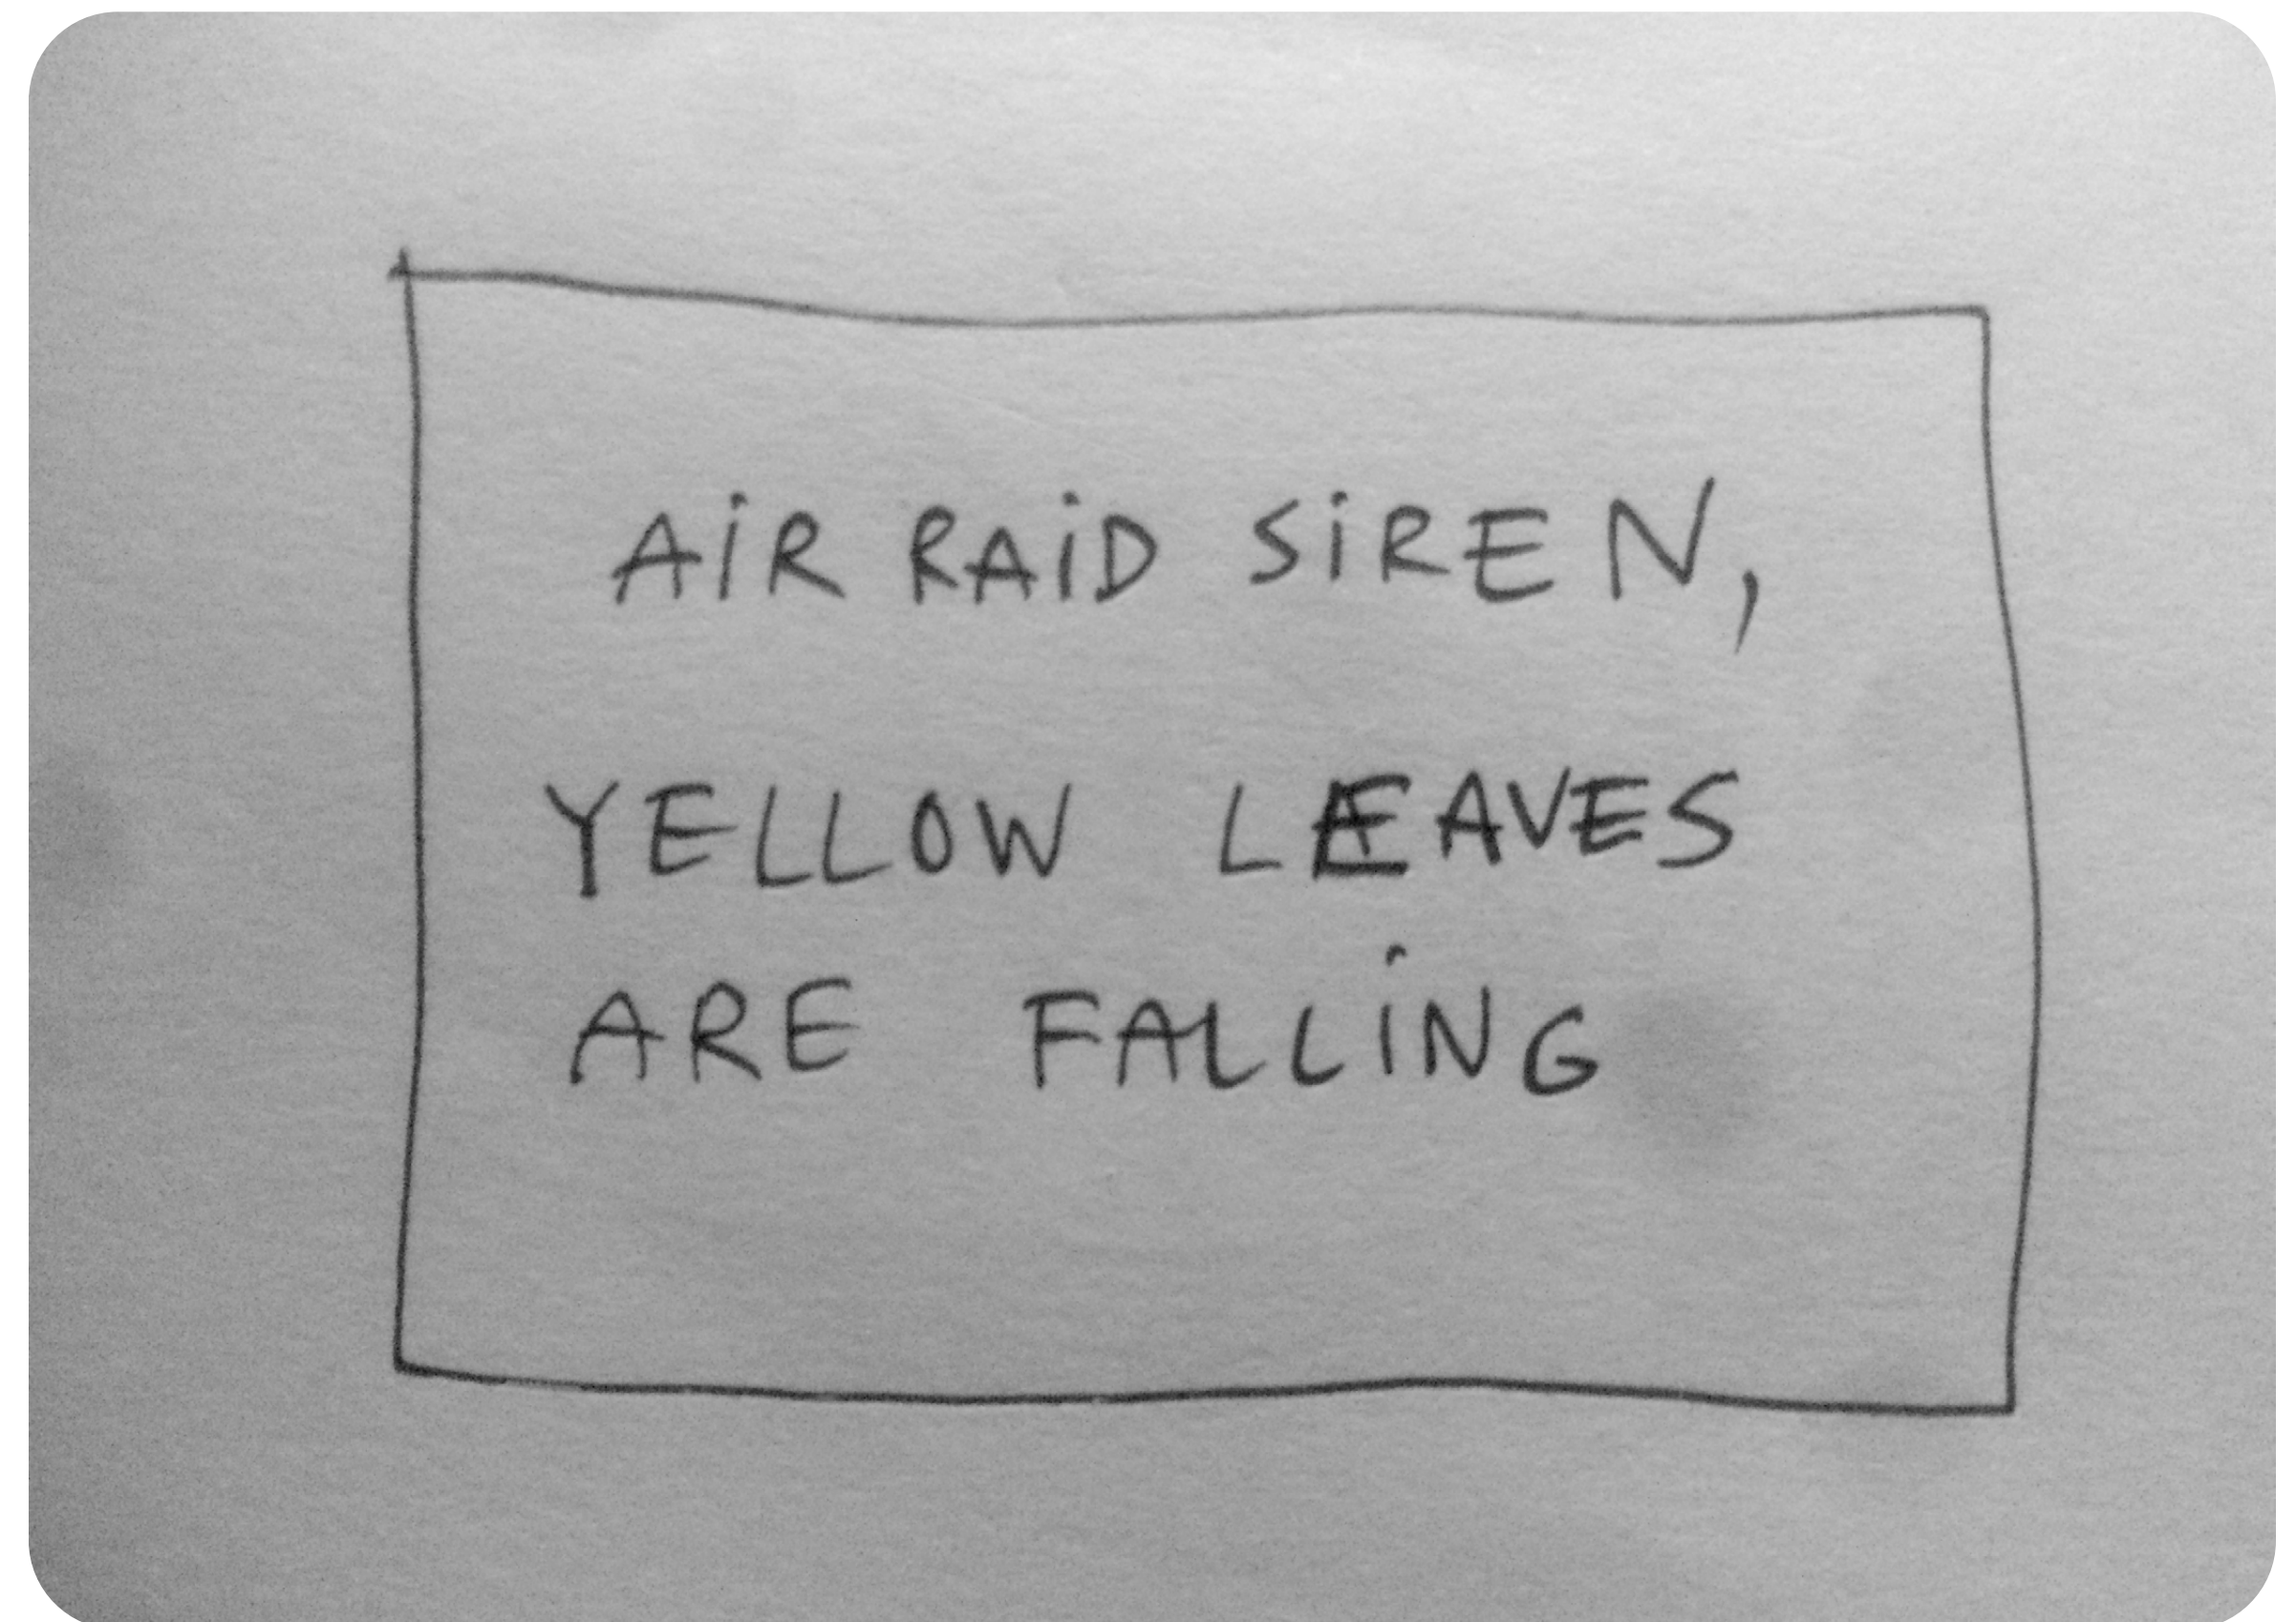 AiR RAiD SiREN,
YELLOW LEAVES
ARE FALLiNG